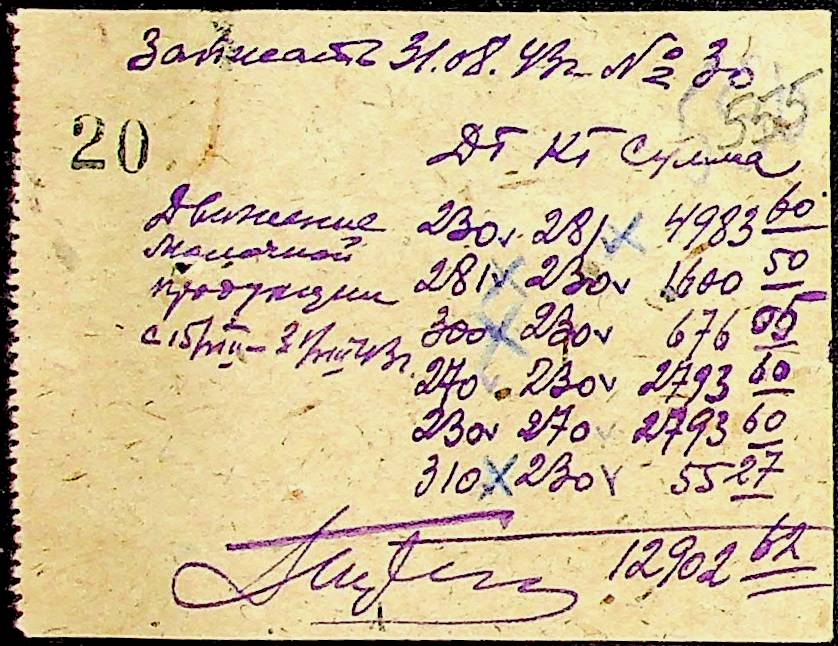 Записать 31.08.43г № 30
555
20
ДТ КТ Сумма
Движение 230 281 4983 60
молочной
281 230 1600 50
продукции
300 230 676 05
с 15/VIII – 31/VIII 43г.
270 230 2793 60
230 270 2793 60
310 230 55 27
12902 62